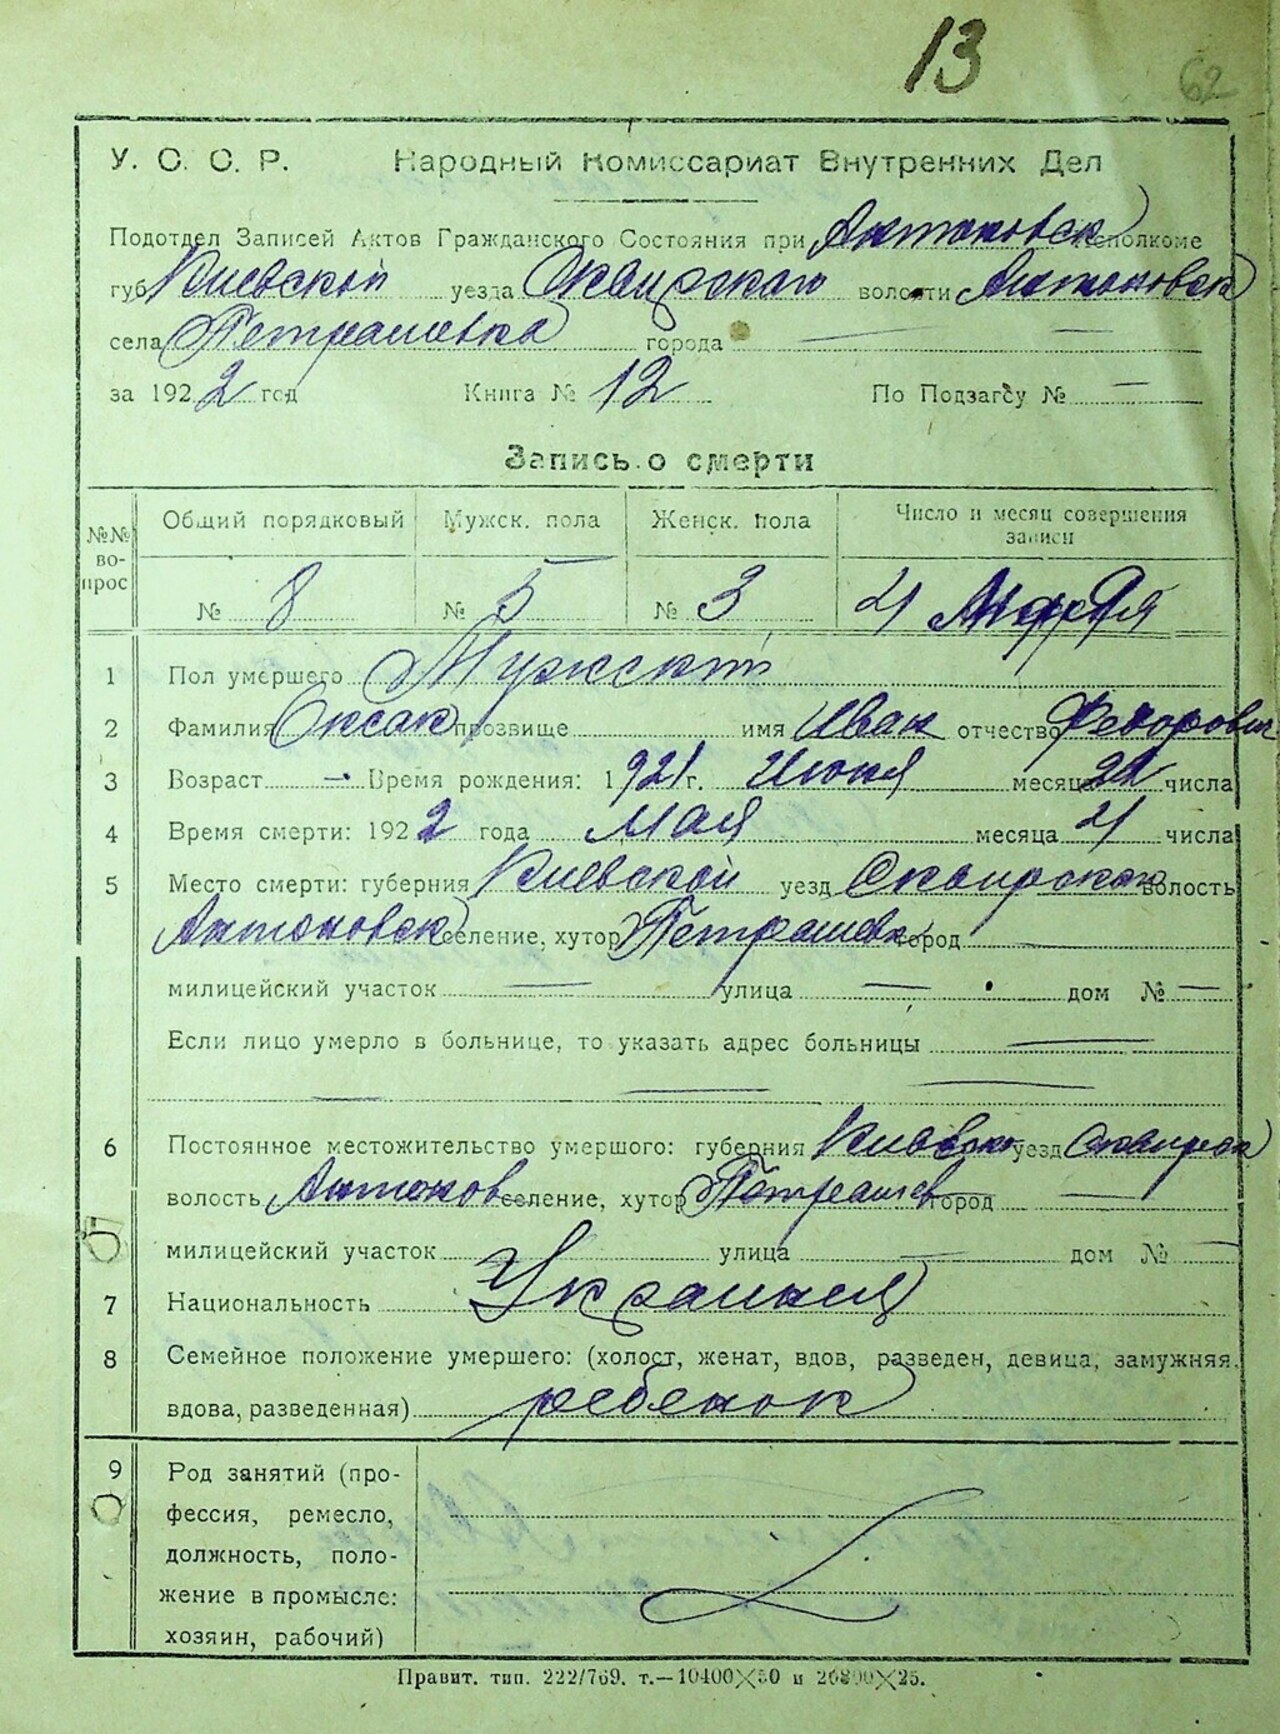 13
62
У. С. С. Р. Народный Комиссариат Внутренних Дел
Подотдел Записей Актов Гражданского Состояния при Антоновск исполкоме
губ Киевской уезда Сквирского волости Антоновск
села Петрашевка города —
за 1922 год Книга № 12 По Подзагсу № —
Запись о смерти
№№ вопрос Общий порядковый Мужск. пола Женск. пола Число и месяц совершения записи
№ 8 № 5 № 3 4
1 Пол умершего Мужской
2 Фамилия Оксак прозвище имя Иван отчество Федорович
3 Возраст — Время рождения: 1921 г. Июня месяца 22 числа
4 Время смерти: 1922 года Мая месяца 4 числа
5 Место смерти: губерния Киевской уезд Сквирском волость
Антоновск селение, хутор Петрашевк город —
милицейский участок — улица — дом № —
Если лицо умерло в больнице, то указать адрес больницы —
— — —
6 Постоянное местожительство умершого: губерния Киевск уезд Сквирск
волость Антонов селение, хутор Петрашев город —
милицейский участок улица — дом № —
7 Национальность
8 Семейное положение умершего: (холост, женат, вдов, разведен, девица, замужняя,
вдова, разведенная) ребенок
9 Род занятий (про-
фессия, ремесло,
должность, поло-
жение в промысле:
хозяин, рабочий)
Правит. тип. 222/769. т.—10400×50 и 26800×25.